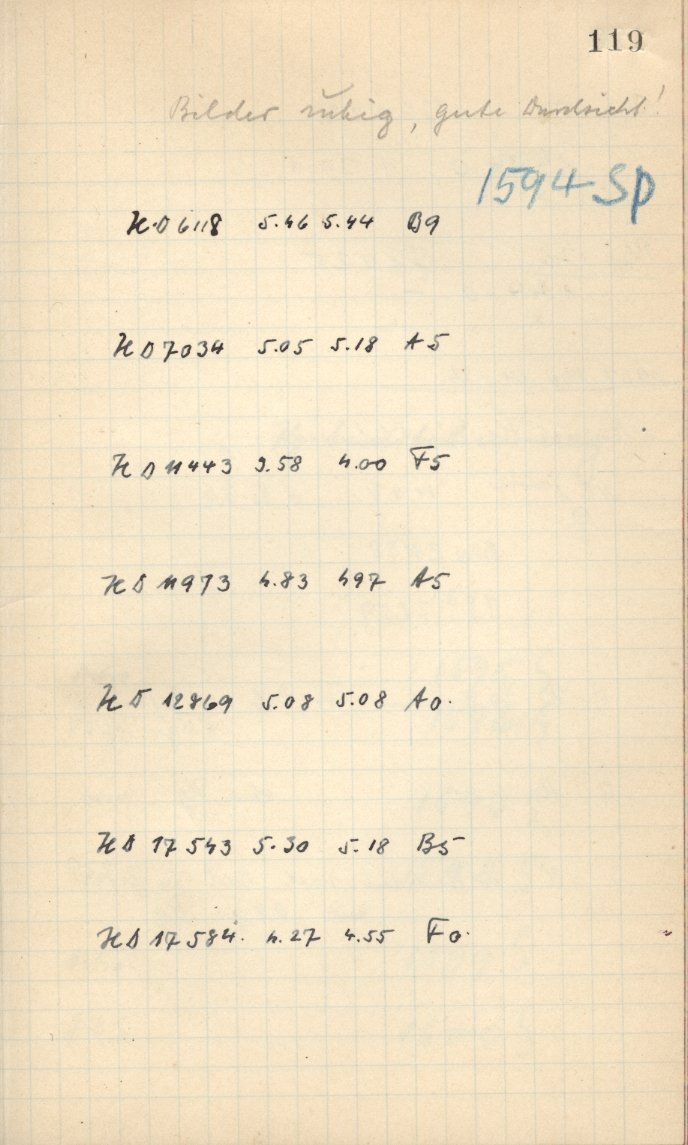 119
Bilder ruhig, gute Durchsicht!
1594 Sp
HD 6118 5.46 5.44 B9
HD 7034 5.05 5.18 A5
HD 11443 3.58 4.00 F5
HD 11973 4.83 497 A5
HD 12869 5.08 5.08 A0.
HD 17543 5.30 5.18 B5
HD 17584. 4.27 4.55 F0.